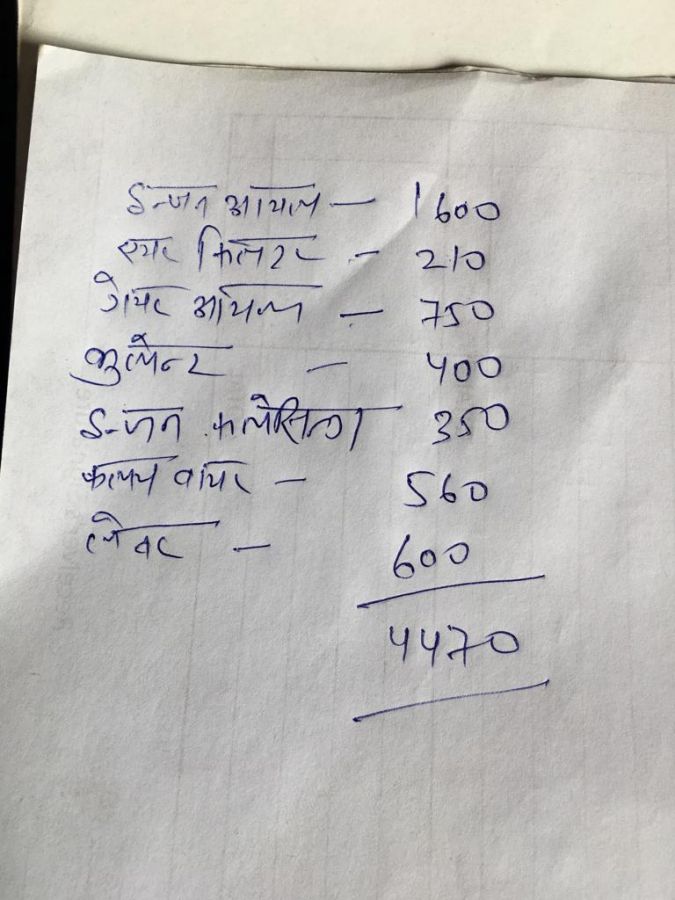 इन्जन आयल — 1600
एयर फिल्टर - 210
गेयर आयल — 750
कुलेन्ट - 400
इन्जन 350
कलच वायर - 560
लेबर - 600
4470